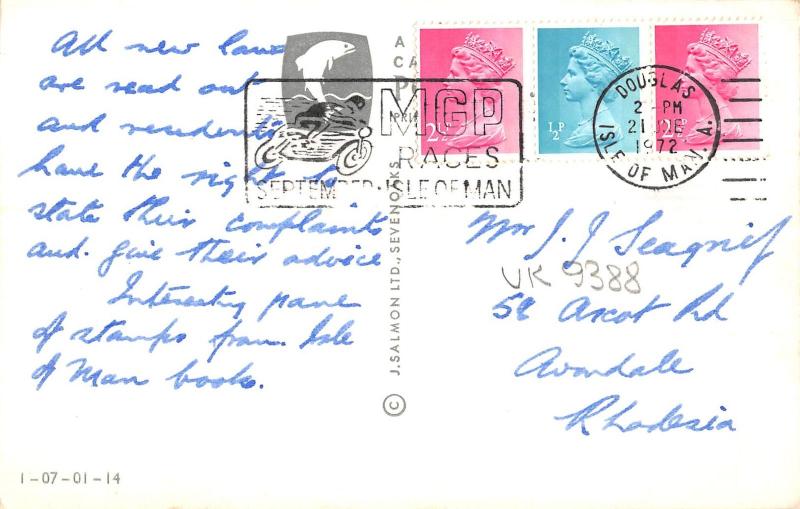 All new laws
are read out
and residents
have the right to
state their complaints
and give their advice
Interesting pane
of stamps from Isle
of Man book.
1-07-01-14
A
CA
© J. SALMON LTD., SEVENOAKS
MGP
RACES
SEPTEMBER · ISLE OF MAN
2½P
½P
2½P
DOUGLAS
2 - PM
21 JNE
1972
ISLE OF MAN. A.
Mr J. J Seagrief
UK 9388
58 Ascot Rd
Avondale
Rhodesia